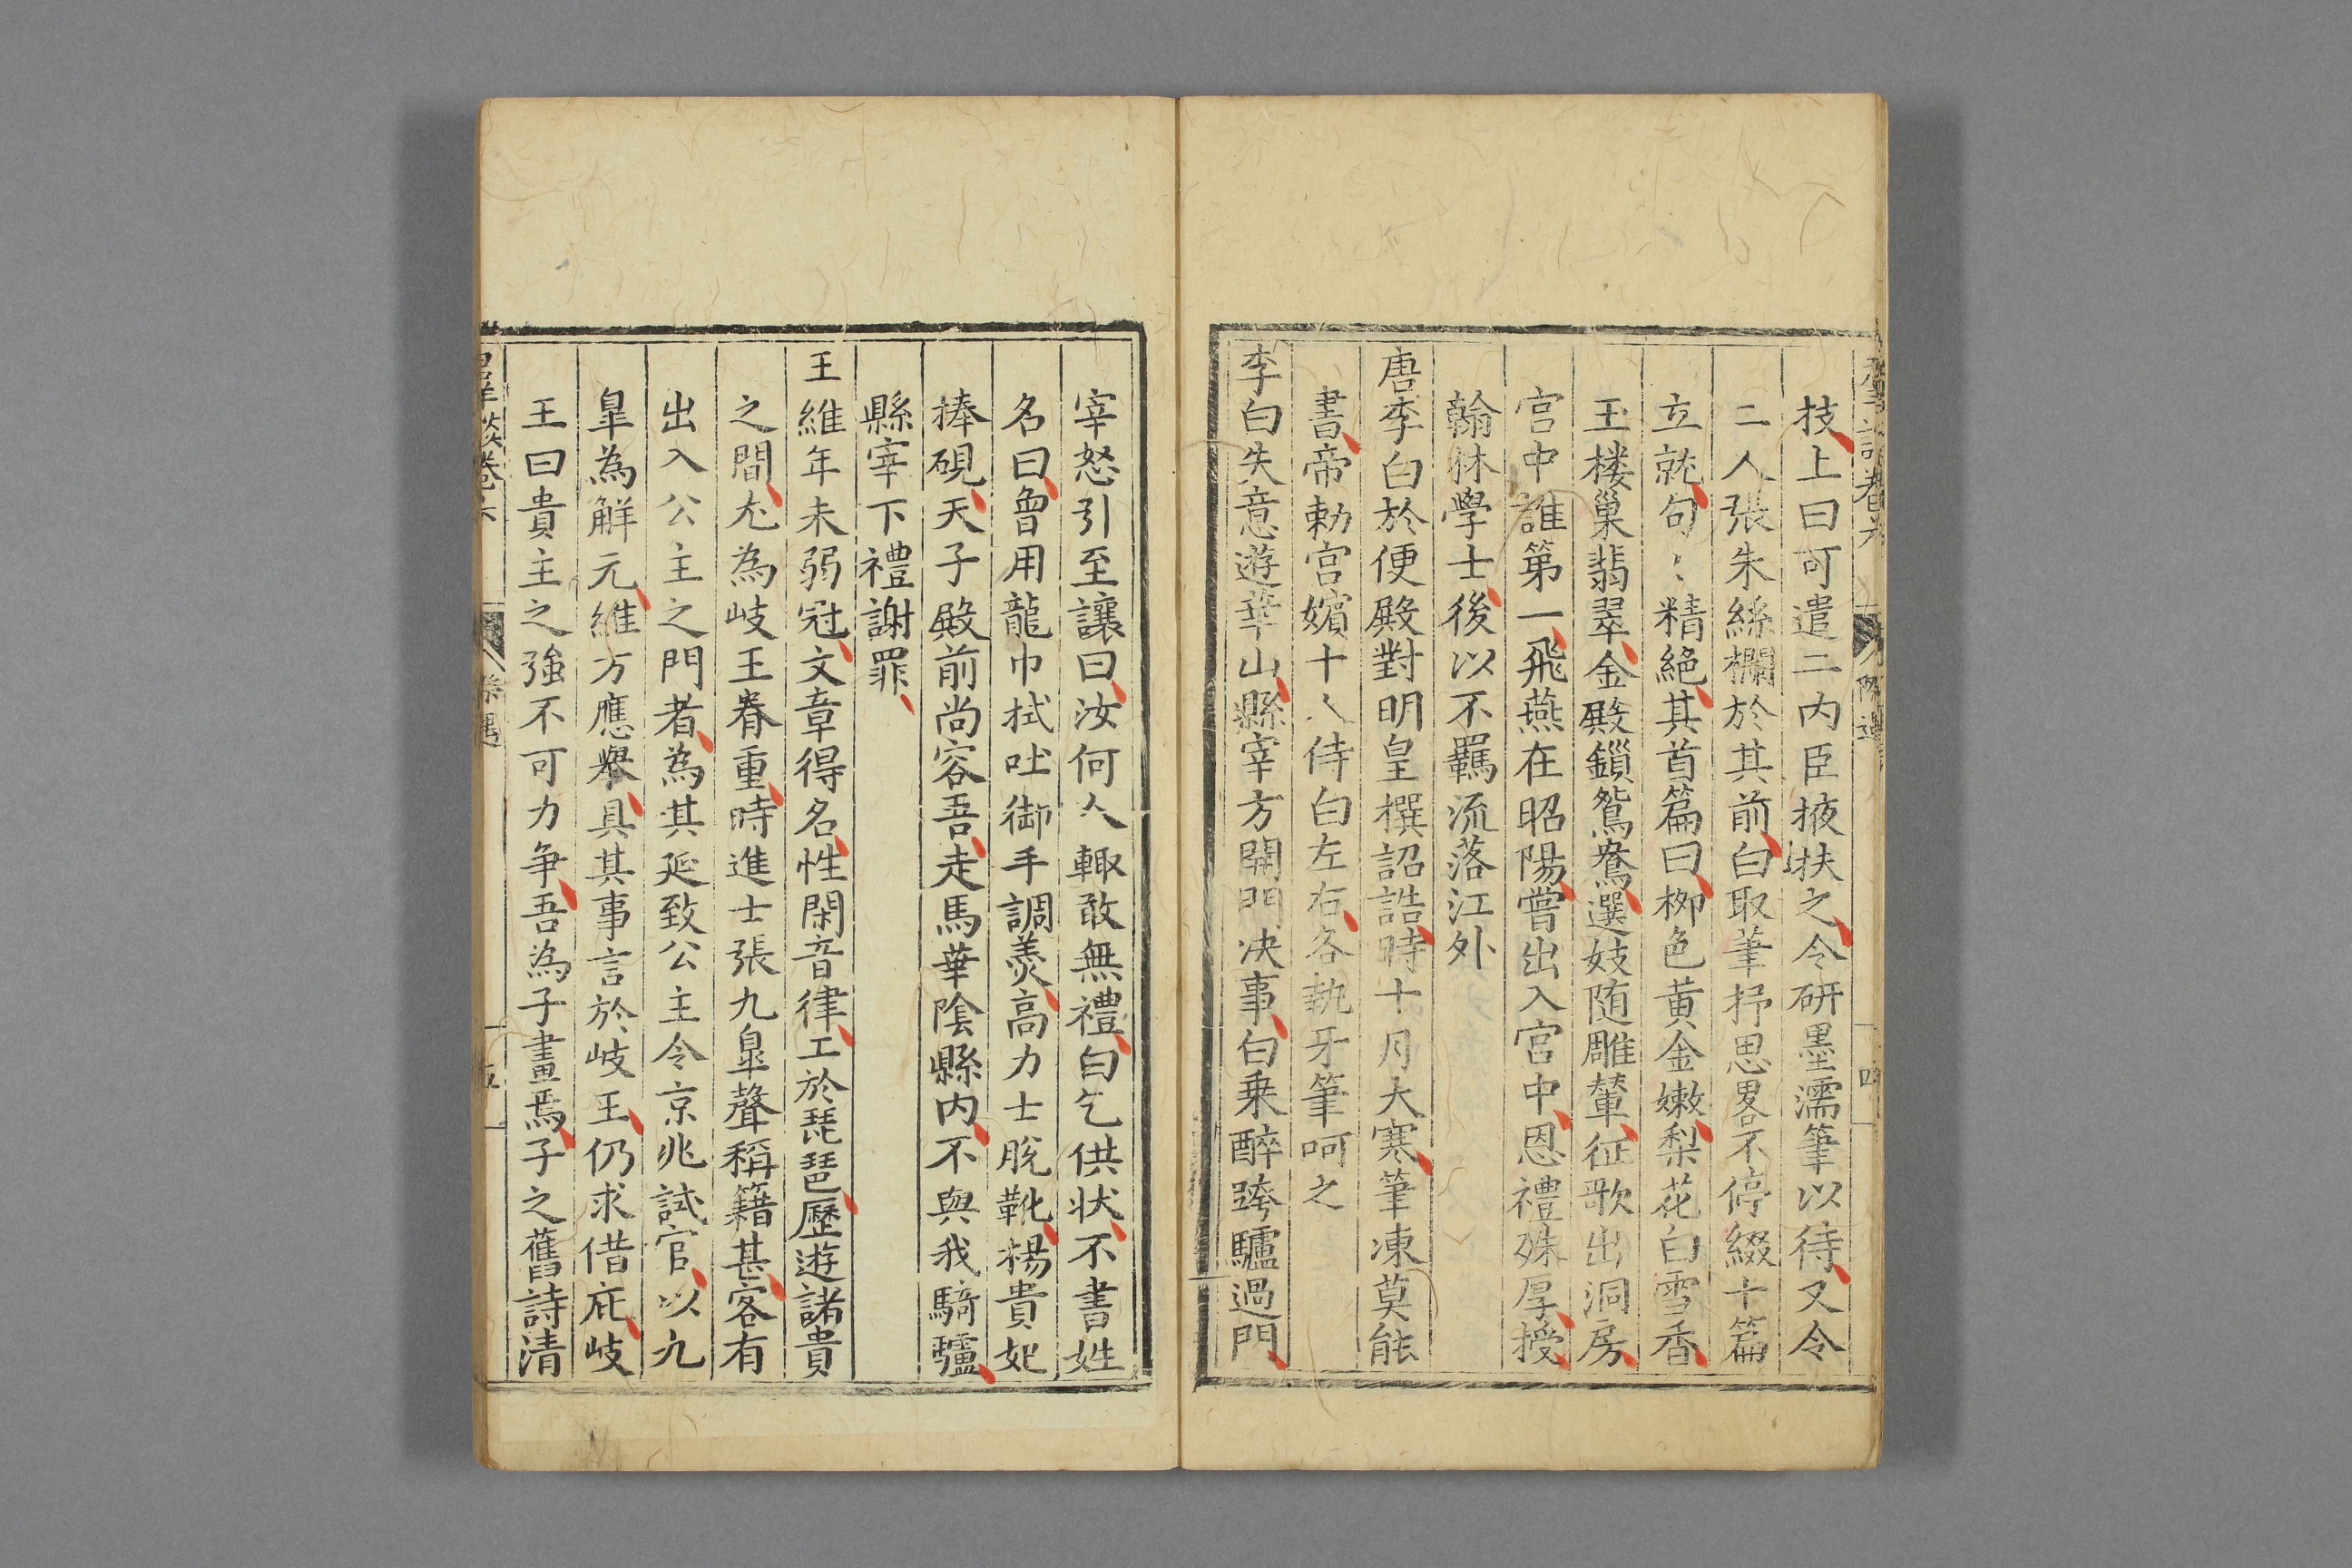 技上曰可遣二内臣掖扶之令研墨濡筆以待又令
二人張朱絲欄於其前白取筆抒思畧不停綴十篇
立就句〻精絕其首篇曰柳色黄金嫩梨花白雪香
玉楼巢翡翠金殿鎖鴛鴦選妓随雕輦征歌出洞房
宮中誰第一飛燕在昭陽嘗出入宮中恩禮殊厚授
翰林學士後以不羈流落江外
唐李白於便殿對明皇撰詔誥時十月大寒筆凍莫能
書帝勅宮嬪十人侍白左右各執牙筆呵之
李白失意遊華山縣宰方開門决事白乗醉跨驢過門
宰怒引至讓曰汝何人輙敢無禮白乞供状不書姓
名曰曾用龍巾拭吐御手調羮高力士脱靴楊貴妃
捧硯天子殿前尚容吾走馬華陰縣内不與我騎驢
縣宰下禮謝罪
王維年未弱冠文章得名性閑音律工於琵琶歷遊諸貴
之間尤為岐王眷重時進士張九臯聲稱籍甚客有
出入公主之門者為其延致公主令京兆試官以九
臯為解元維方應舉具其事言於岐王仍求借庇岐
王曰貴主之強不可力争吾為子畫焉子之舊詩清